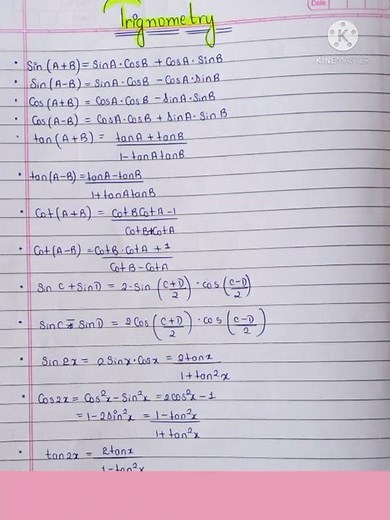 Date
Trignometry
KINEMASTER
• Sin (A+B) = SinA·CosB + CosA·SinB
• Sin (A-B) = SinA·CosB - CosA·SinB
• Cos (A+B) = CosA·CosB - SinA·SinB
• Cos (A-B) = CosA·CosB + SinA·SinB
• tan (A+B) = tanA + tanB
1 - tanA tanB
• tan (A-B) = tanA - tanB
1 + tanA tanB
• Cot (A+B) = CotB CotA - 1
CotB + CotA
• Cot (A-B) = CotB·CotA + 1
CotB - CotA
• Sin C + SinD = 2·Sin (C+D/2) · cos (C-D/2)
• SinC - SinD = 2Cos (C+D/2) · cos (C-D/2)
• Sin2x = 2Sinx·Cosx = 2tanx
1 + tan²x
• Cos2x = Cos²x - Sin²x = 2cos²x - 1
= 1 - 2Sin²x = 1 - tan²x
1 + tan²x
• tan2x = 2tanx
1 - tan²x